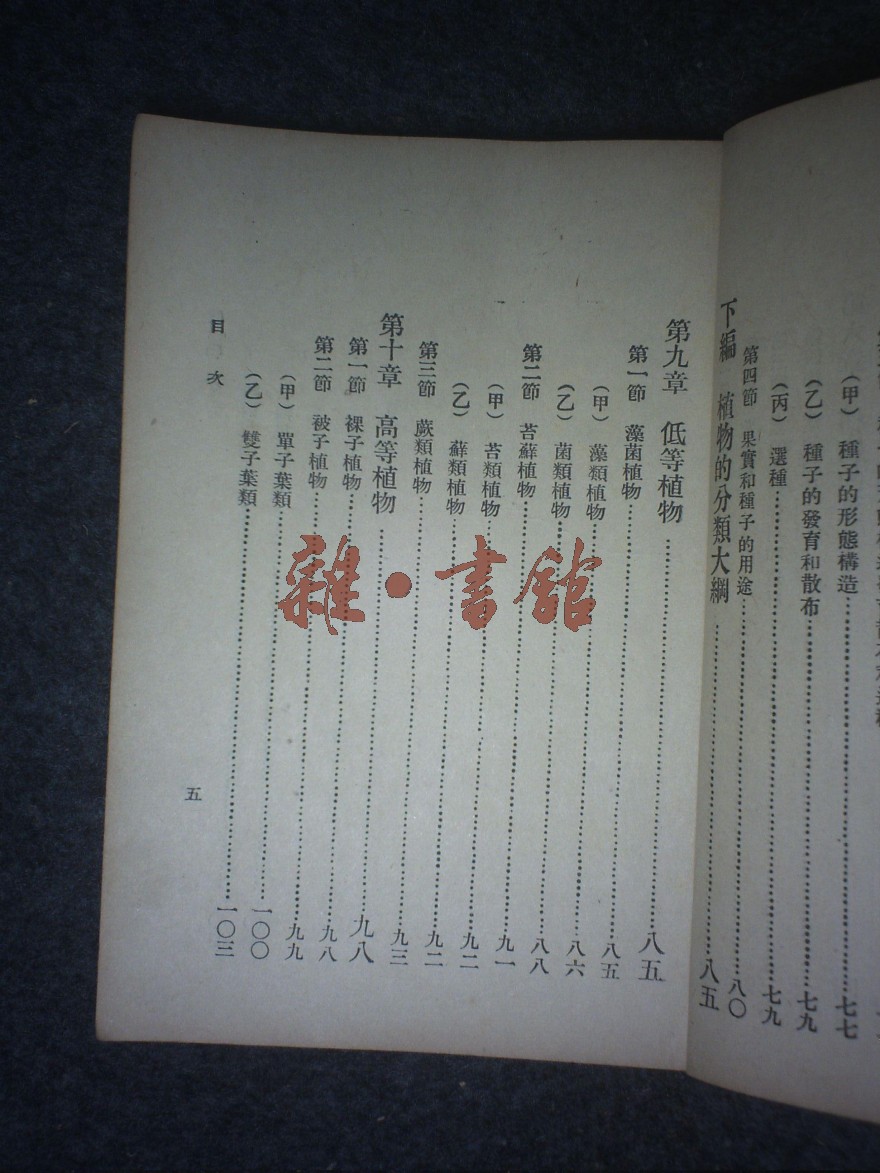 （甲）種子的形態構造……七七
（乙）種子的發育和散布……七九
（丙）選種……七九
第四節 果實和種子的用途……八〇
下編 植物的分類大綱……八五
第九章 低等植物……八五
第一節 藻菌植物……八五
（甲）藻類植物……八六
（乙）菌類植物……八八
第二節 苔蘚植物……九一
（甲）苔類植物……九二
（乙）蘚類植物……九二
第三節 蕨類植物……九三
第十章 高等植物……九八
第一節 裸子植物……九八
第二節 被子植物……九九
（甲）單子葉類……一〇〇
（乙）雙子葉類……一〇三
目次
五
雜·書館